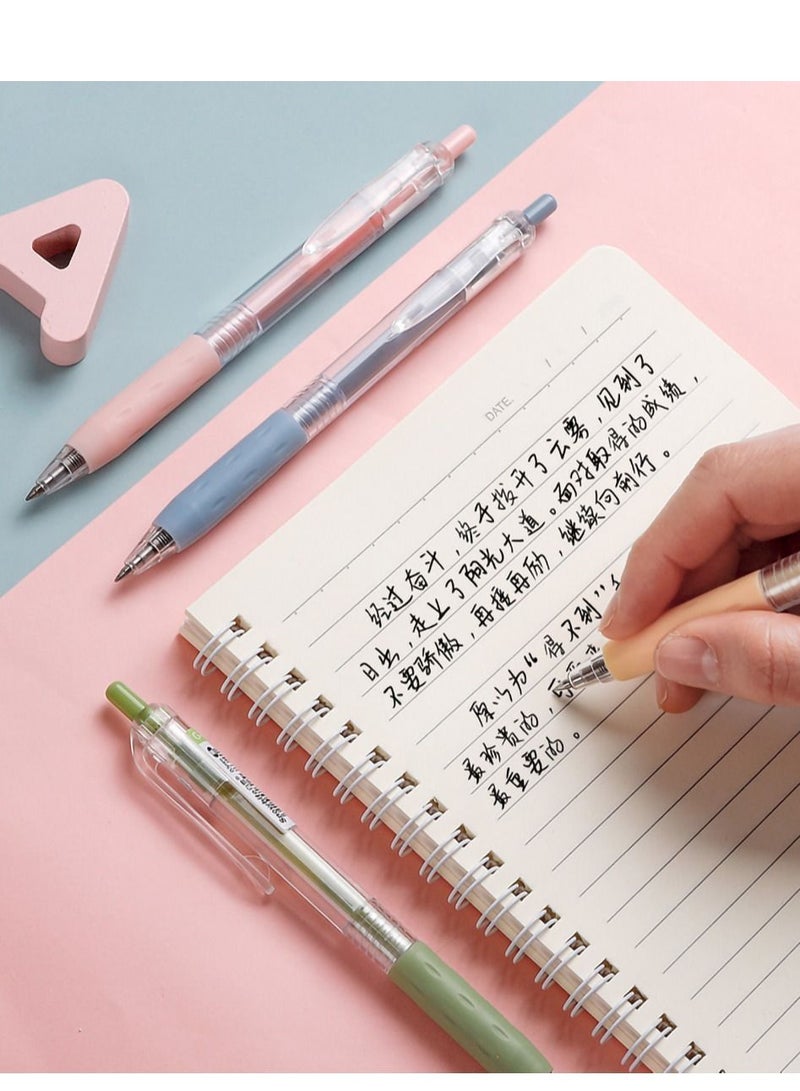 DATE. / /
经过奋斗，终于拨开了云雾，见到了
日出，走上了阳光大道。面对取得的成绩，
不要骄傲，再接再励，继续向前行。
原以为“得不到”
最珍贵的，
最重要的。